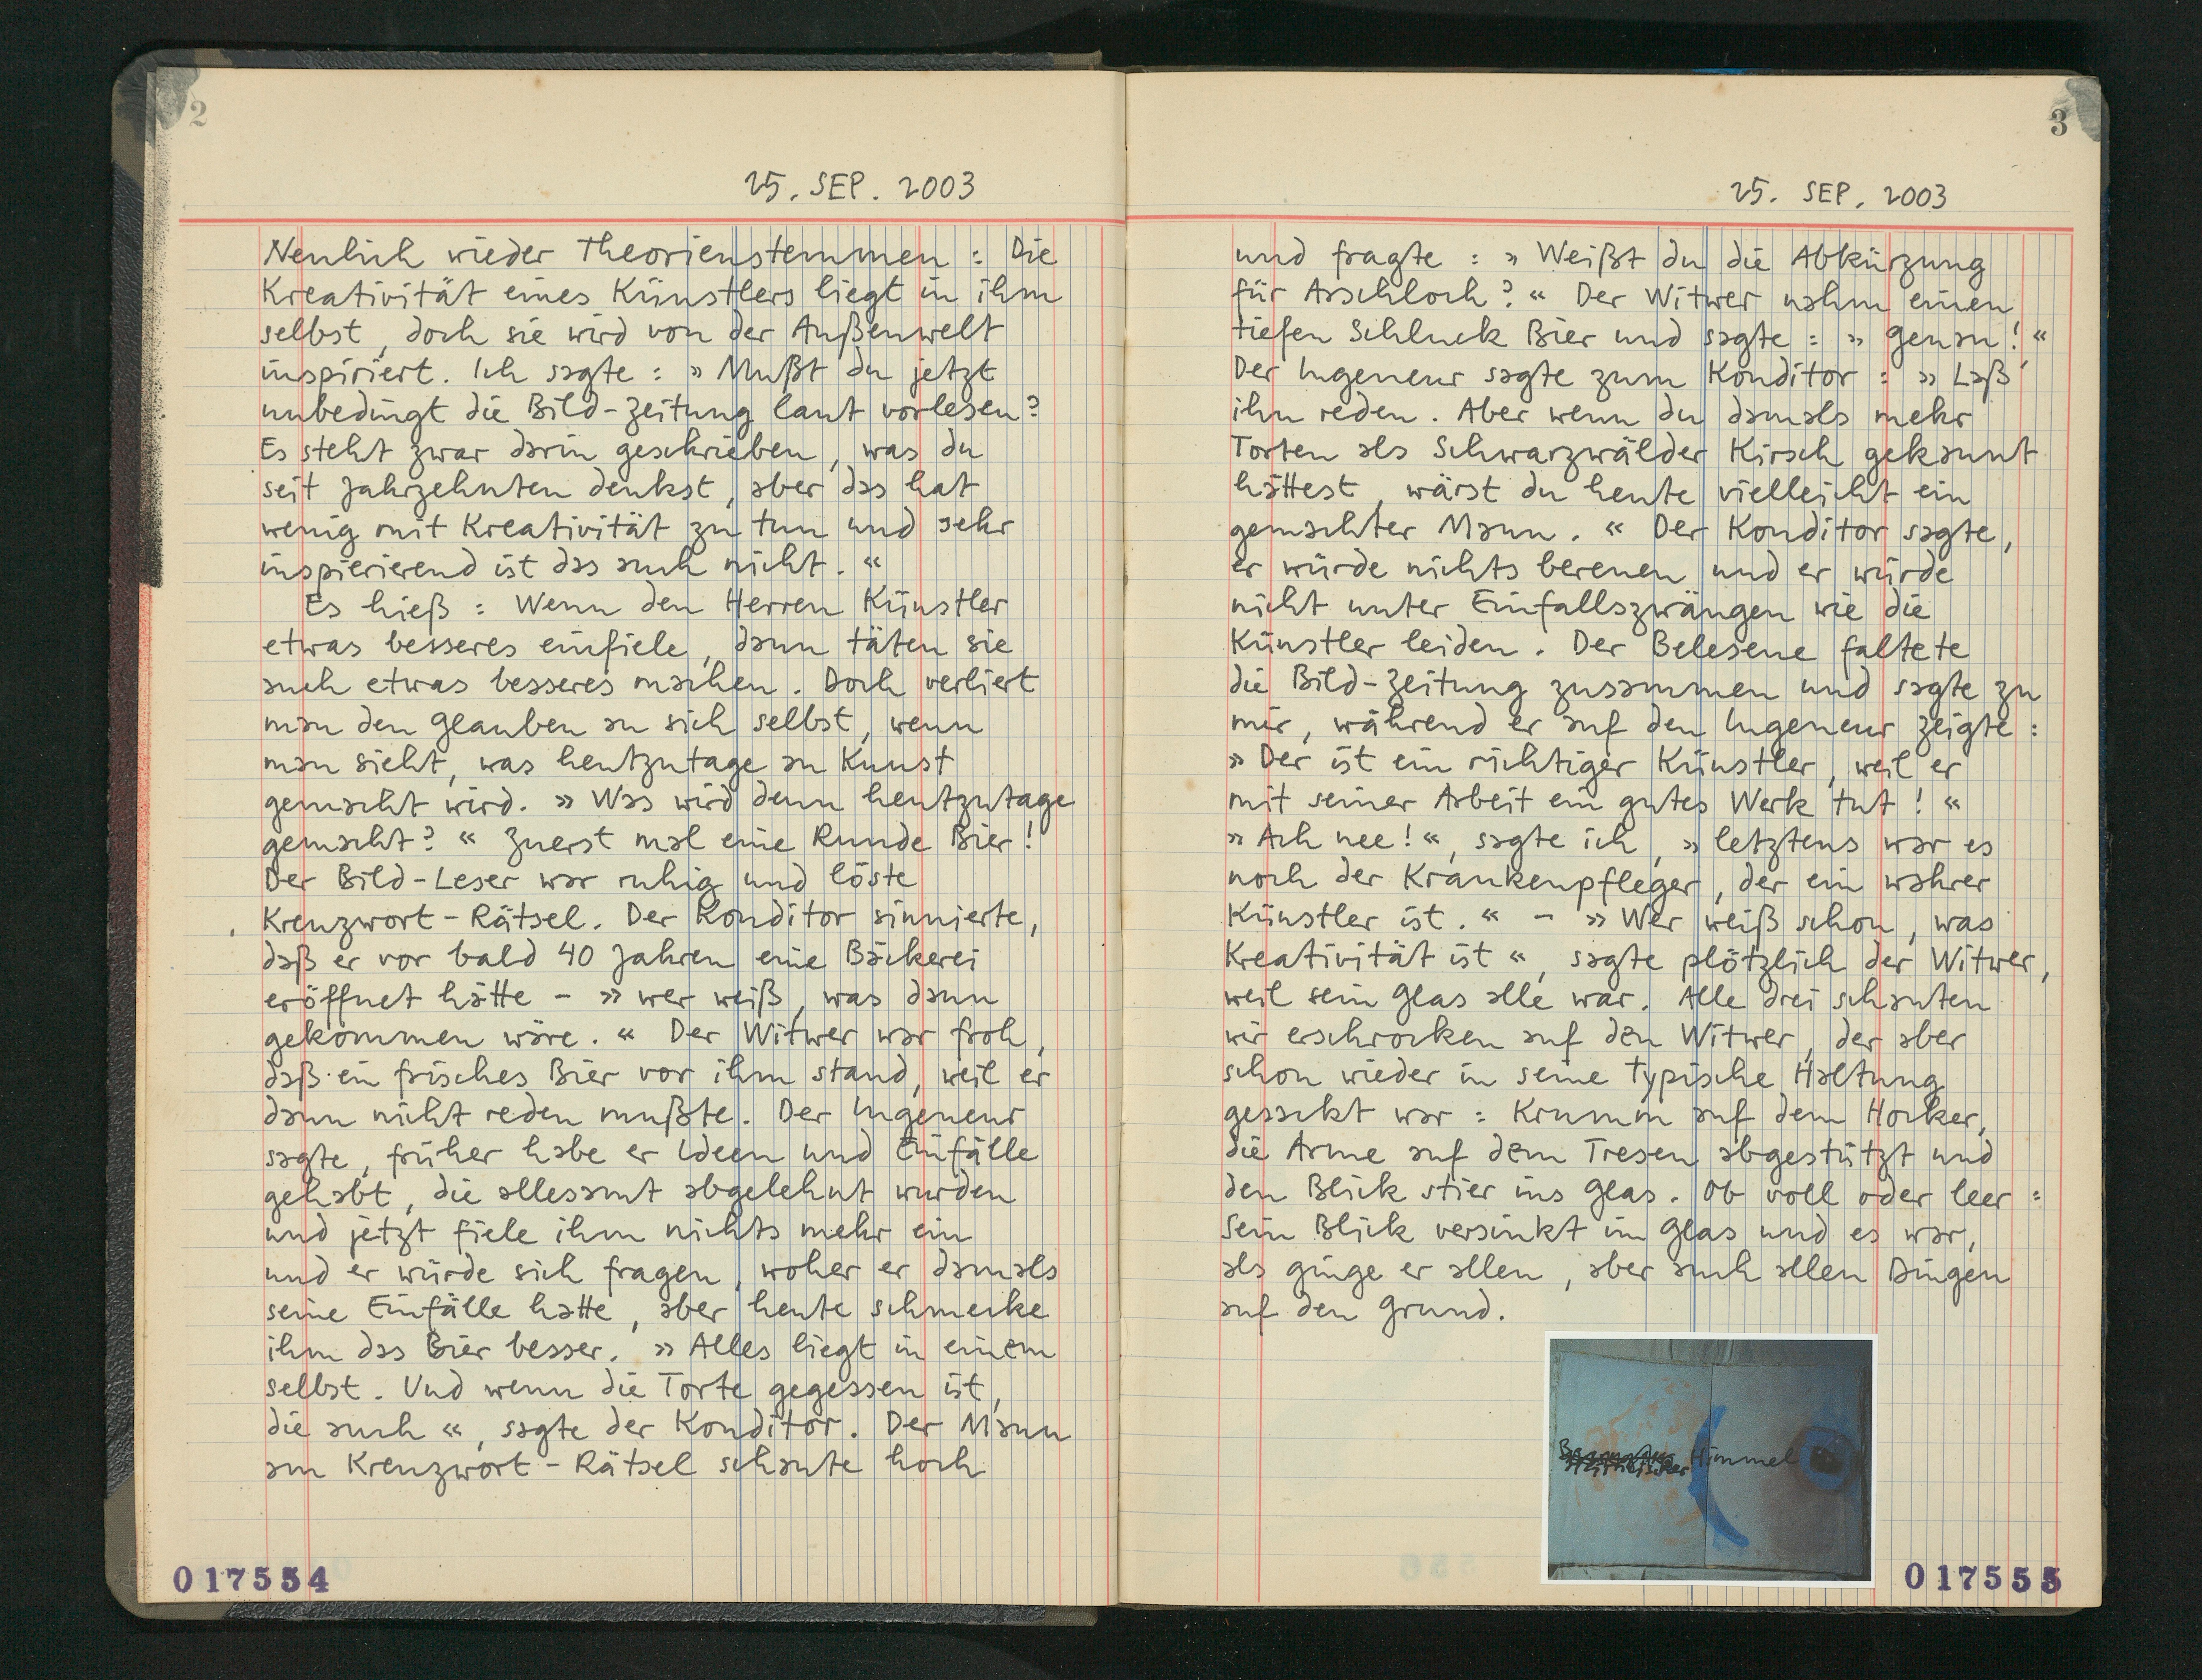 2
25. SEP. 2003
Neulich wieder Theorienstemmen : Die
Kreativität eines Künstlers liegt in ihm
selbst, doch sie wird von der Außenwelt
inspiriert. Ich sagte : » Mußt du jetzt
unbedingt die Bild-Zeitung laut vorlesen?
Es steht zwar darin geschrieben, was du
seit Jahrzehnten denkst, aber das hat
wenig mit Kreativität zu tun und sehr
inspierierend ist das auch nicht. «
Es hieß : Wenn den Herren Künstler
etwas besseres einfiele, dann täten sie
auch etwas besseres machen. Doch verliert
man den Glauben an sich selbst, wenn
man sieht, was heutzutage an Kunst
gemacht wird. » Was wird denn heutzutage
gemacht? « Zuerst mal eine Runde Bier!
Der Bild-Leser war ruhig und löste
Kreuzwort-Rätsel. Der Konditor sinnierte,
daß er vor bald 40 Jahren eine Bäckerei
eröffnet hätte - » wer weiß, was dann
gekommen wäre. « Der Witwer war froh,
daß ein frisches Bier vor ihm stand, weil er
dann nicht reden mußte. Der Ingeneur
sagte, früher habe er Ideen und Einfälle
gehabt, die allesamt abgelehnt wurden
und jetzt fiele ihm nichts mehr ein
und er würde sich fragen, woher er damals
seine Einfälle hatte, aber heute schmecke
ihm das Bier besser. » Alles liegt in einem
selbst. Und wenn die Torte gegessen ist,
die auch «, sagte der Konditor. Der Mann
am Kreuzwort-Rätsel schaute hoch
017554
3
25. SEP. 2003
und fragte : » Weißt du die Abkürzung
für Arschloch? « Der Witwer nahm einen
tiefen Schluck Bier und sagte : » Genau! «
Der Ingeneur sagte zum Konditor : » Laß
ihn reden. Aber wenn du damals mehr
Torten als Schwarzwälder Kirsch gekannt
hättest, wärst du heute vielleicht ein
gemachter Mann. « Der Konditor sagte,
er würde nichts bereuen und er würde
nicht unter Einfallszwängen wie die
Künstler leiden. Der Belesene faltete
die Bild-Zeitung zusammen und sagte zu
mir, während er auf den Ingeneur zeigte :
» Der ist ein richtiger Künstler, weil er
mit seiner Arbeit ein gutes Werk tut! «
» Ach nee! «, sagte ich, » letztens war es
noch der Krankenpfleger, der ein wahrer
Künstler ist. « - » Wer weiß schon, was
Kreativität ist «, sagte plötzlich der Witwer,
weil sein Glas alle war. Alle drei schauten
wir erschrocken auf den Witwer, der aber
schon wieder in seine typische Haltung
gesackt war : Krumm auf dem Hocker,
die Arme auf dem Tresen abgestützt und
den Blick stier ins Glas. Ob voll oder leer :
Sein Blick versinkt im Glas und es war,
als ginge er allen, aber auch allen Dingen
auf den Grund.
Himmel
017555